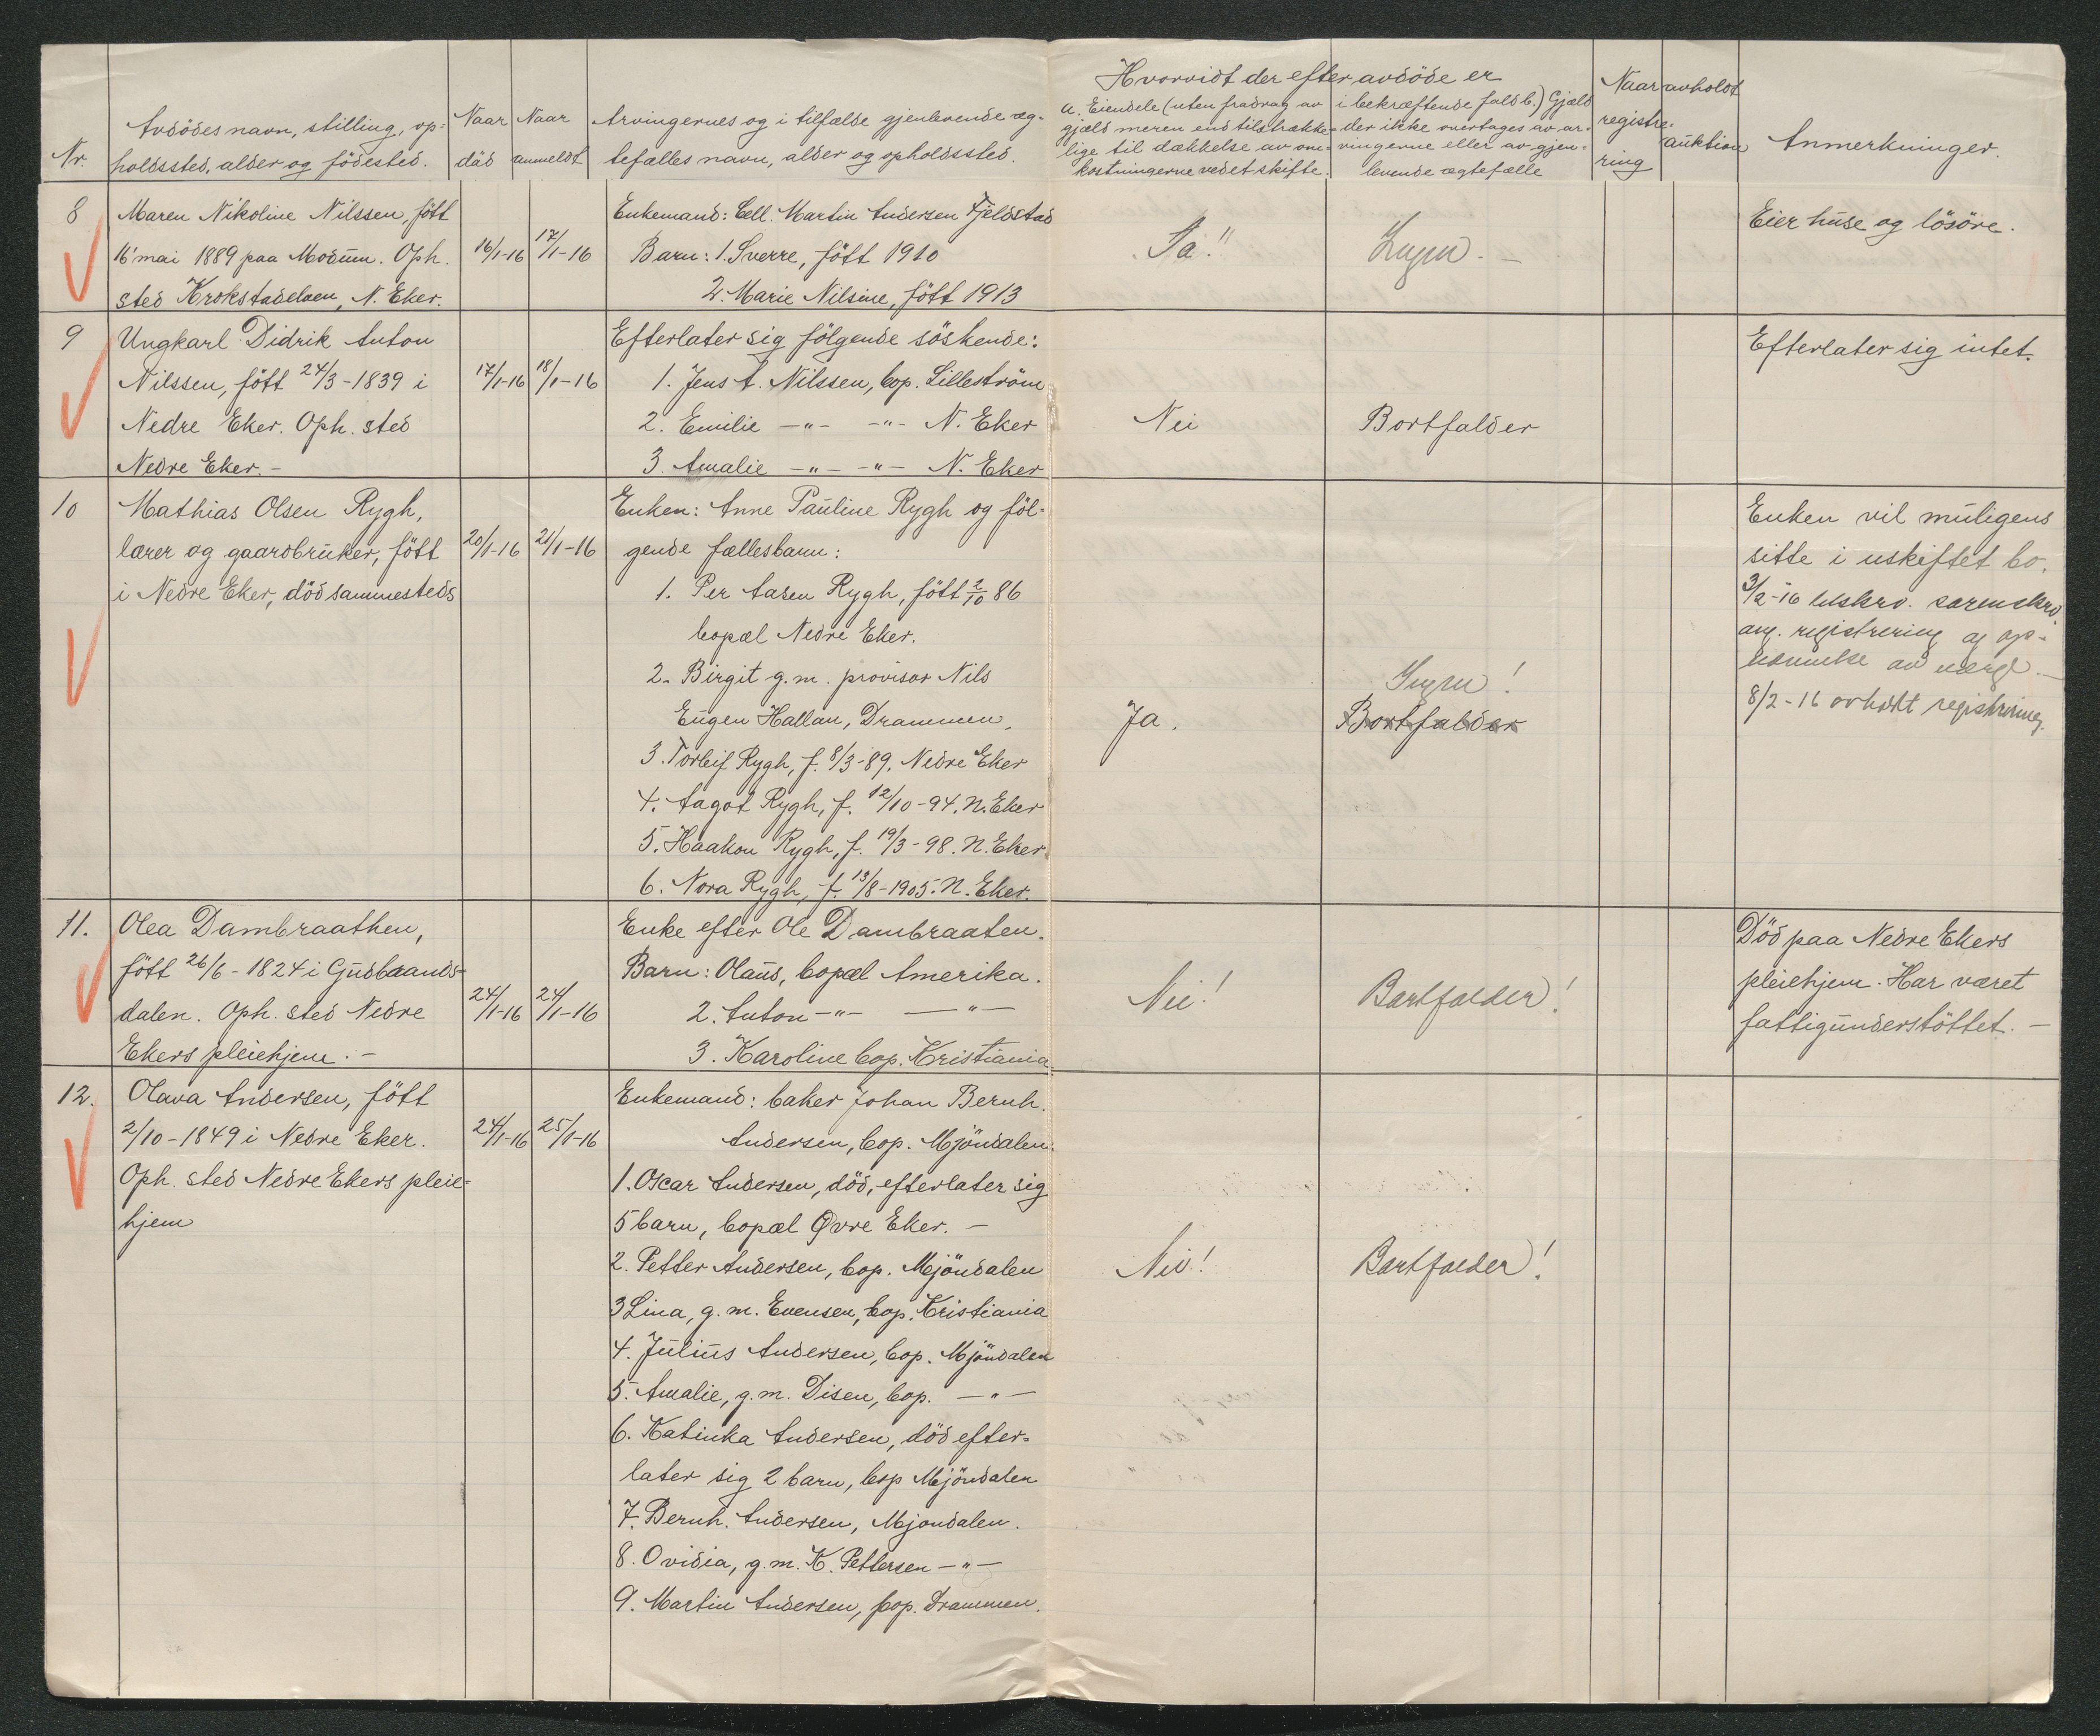 Hvorvidt der efter avdöde er
Nr.
Avdödes navn, stilling, op-
holdssted, alder og födested.
Naar
död
Naar
anmeldt
Arvingernes og i tilfælde gjenlevende æg-
tefælles navn, alder og opholdssted.
a. Eiendele (uten fradrag av
gjæld meren end tilstrække-
lige til dækkelse av om-
kostningerne vedet skifte.
i bekræftende fald b.) Gjæld
der ikke overtages av ar-
vingerne eller av gjen-
levende ægtefælle
Naar avholdt
registre-
ring
auktion
Anmerkninger.
8
Maren Nikoline Nilssen, fött
16' mai 1889 paa Modum. Oph.
sted Krokstadelven, N. Eker.
16/1-16
17/1-16
Enkemand: Cell. Martin Andersen Fjeldstad
Barn: 1. Sverre, fött 1910
2. Marie Nilsine, fött 1913
Ja!!
Ingen. -
Eier huse og lösöre.
9
Ungkarl Didrik Anton
Nilssen, fött 24/3-1839 i
Nedre Eker. Oph. sted
Nedre Eker. -
17/1-16
18/1-16
Efterlater sig fölgende söskende:
1. Jens A. Nilssen, bop. Lilleström
2. Emilie -"- -"- N. Eker
3. Amalie -"- -"- N. Eker
Nei
Bortfalder
Efterlater sig intet.
10
Mathias Olsen Rygh,
lærer og gaardbruker, fött
i Nedre Eker, död sammesteds
20/1-16
21/1-16
Enken: Anne Pauline Rygh og föl-
gende fællesbarn:
1. Per Aasen Rygh, fött 2/10 86
bopæl Nedre Eker.
2. Birgit g.m. provisor Nils
Eugen Hallan, Drammen,
3. Torleif Rygh, f. 8/3-89. Nedre Eker
4. Aagot Rygh, f. 12/10-94. N. Eker
5. Haakon Rygh, f. 19/3-98. N. Eker
6. Nora Rygh, f. 13/8-1905. N. Eker.
Ja.
Ingen!
Bortfalder
Enken vil muligens
sitte i uskiftet bo.
3/2-16 tilskrv.
ang. registrering og op-
nævnelse av værge. -
8/2-16 avholdt registrering.
11.
Olea Dambraathen,
fött 26/6-1824 i Gudbrands-
dalen. Oph. sted Nedre
Ekers pleiehjem. -
24/1-16
24/1-16
Enke efter Ole Dambraaten.
Barn: Olaus, bopæl Amerika.
2. Anton -"- -"-
3. Karoline bop. Kristiania
Nei!
Bortfalder!
Död paa Nedre Ekers
pleiehjem. Har været
fattigunderstöttet. -
12.
Olava Andersen, fött
2/10-1849 i Nedre Eker.
Oph. sted Nedre Ekers pleie-
hjem
24/1-16
25/1-16
Enkemand: baker Johan Bernh.
Andersen, bop. Mjöndalen.
1. Oscar Andersen, död, efterlater sig
5 barn, bopæl Øvre Eker. -
2. Petter Andersen, bop. Mjöndalen
3 Lina, g.m. Evensen, bop. Kristiania
4. Julius Andersen, bop. Mjöndalen
5. Amalie, g.m. Disen, bop. -"-
6. Katinka Andersen, död efter-
later sig 2 barn, bop Mjöndalen
7. Bernh. Andersen, Mjondalen.
8. Ovidia, g.m. K. Pettersen -"-
9. Martin Andersen, bop. Drammen.
Nei!
Bortfalder!